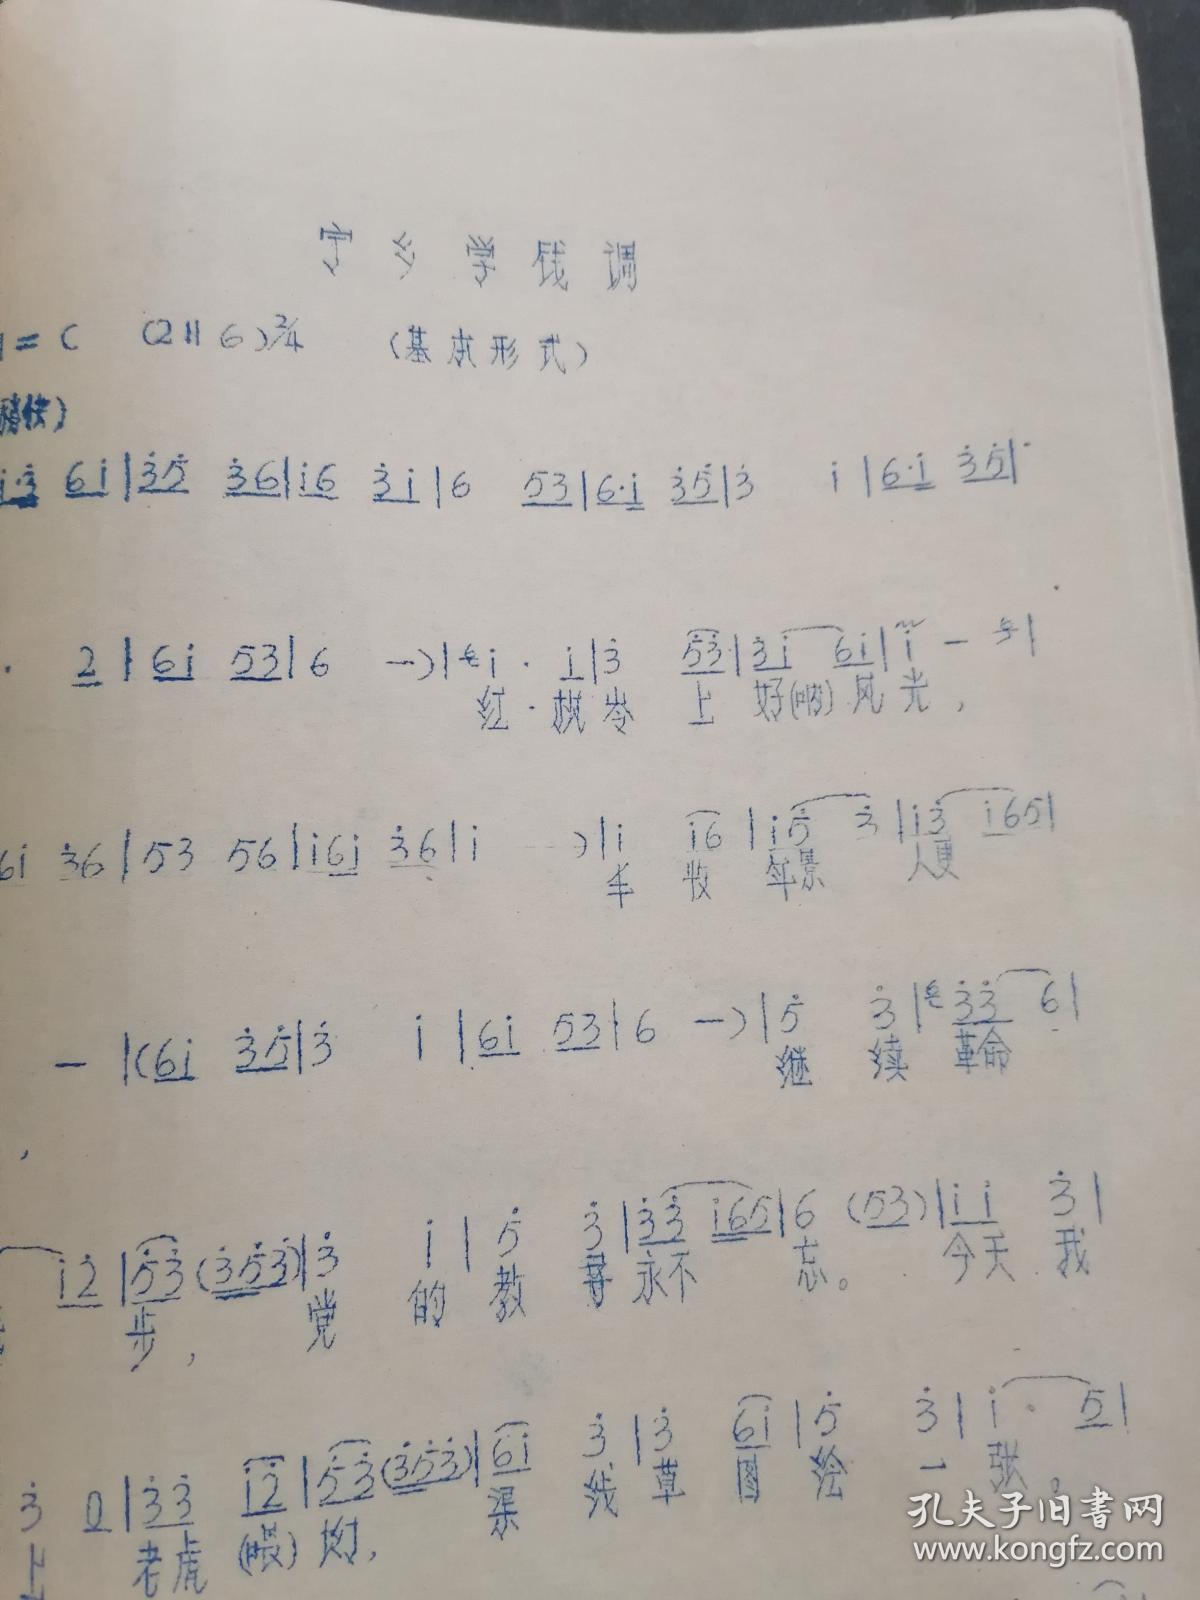 宁乡学钱调
1=C (2 11 6) 2/4 (基本形式)
稍快)
i·3 6i | 35 36 | i6 3i | 6 53 | 6·i 35 | 3 i | 6·i 35 |
· 2 | 6i 53 | 6 —) | i · i | 3 53 | 3i 6i | i — |
红·枫岑上好(呐)风光,
6i 36 | 53 56 | i6i 36 | i ) | i i6 | i5 3 | i3 i65 |
丰收年景人更
— | (6i 35 | 3 i | 6i 53 | 6 —) | 5 3 | 33 6 |
继续革命
,
i2 | 53 (353) | 3 i | 5 3 | 33 i65 | 6 (53) | ii 3 |
步,党的教导永不忘。今天我
3 0 | 33 i2 | 53 (353) | 6i 3 | 3 6i | 5 3 | i · 5 |
上老虎(哏)坳,渠线草图绘一张。
孔夫子旧书网
www.kongfz.com